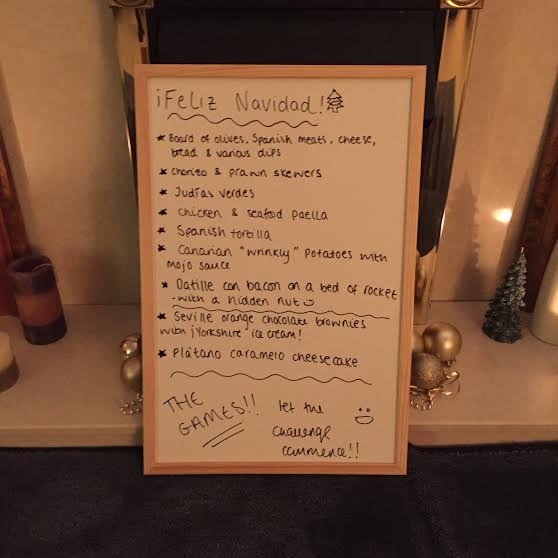 ¡Feliz Navidad!
★ Board of olives, Spanish meats, cheese,
bread & various dips
★ Chorizo & prawn skewers
★ Judías verdes
★ Chicken & seafood paella
★ Spanish tortilla
★ Canarian "wrinkly" potatoes with
mojo sauce
★ Datille con bacon on a bed of rocket
- with a hidden nut
★ Seville orange chocolate brownies
with ¡Yorkshire ice cream!
★ Plátano caramelo cheesecake
THE
GAMES!!
let the
challenge
commence!!